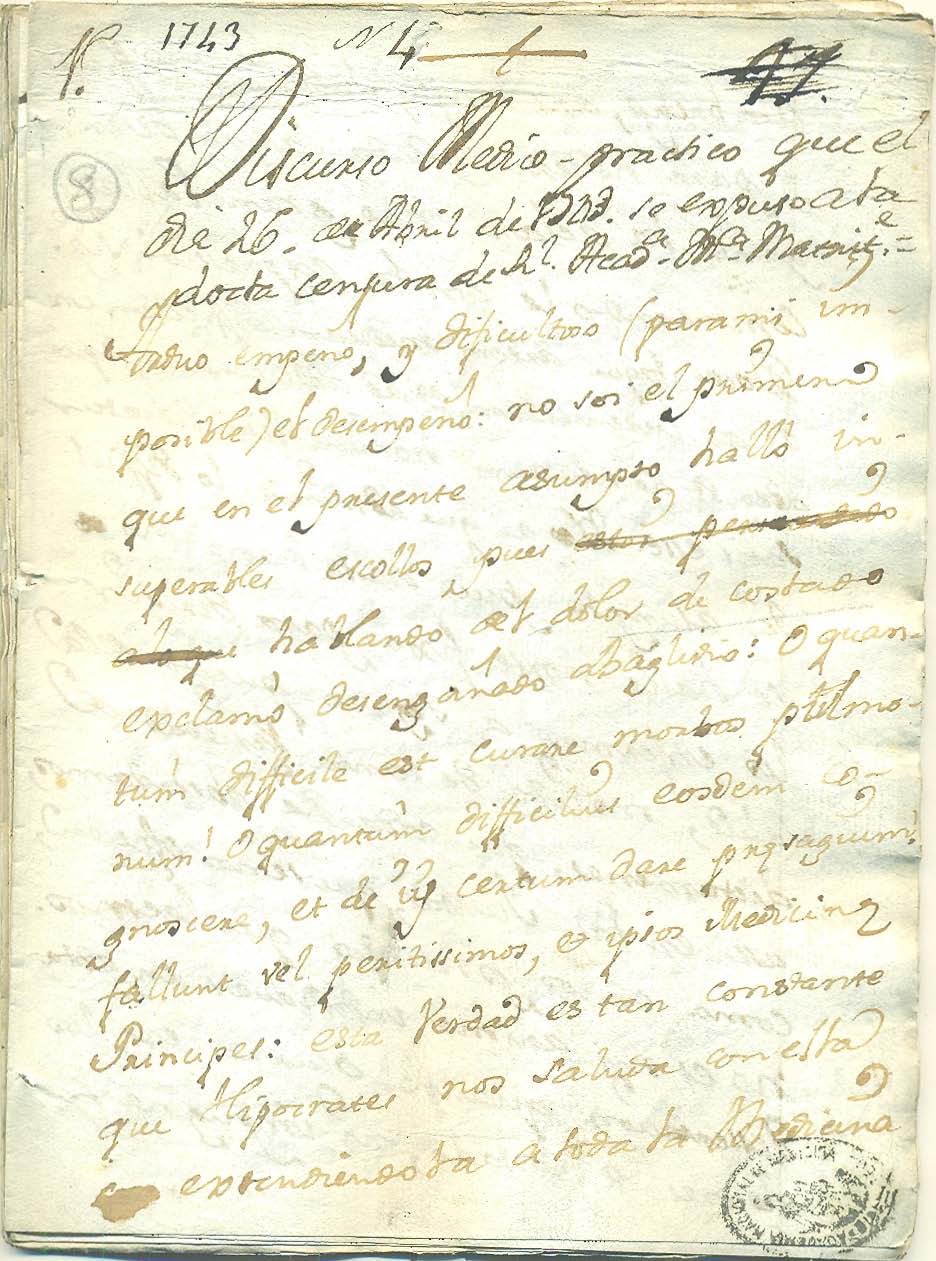 1743 N 4
8
Discurso Medico-practico que el
dia 26. de Abril de 1743. se expuso a la
docta censura de Rl. Acad.ca M.ca Matrit.e =
Arduo empeño, y dificultoso (para mi im-
posible) el desempeño: no soi el primero
que en el presente asumpto halló in-
superables escollos, pues estoi persuadido
a lo que hablando del dolor de costado
exclamó desengañado Baglivio: O quan-
tùm difficile est curare morbos pulmo-
num! O quantùm difficilius eosdem co-
gnoscere, et de iis certum dare pręsagium!
fallunt vel peritissimos, et ipsos Medicinę
Principes: esta Verdad es tan constante
que Hipocrates nos saluda con ella
extendiendola a toda la Medicina